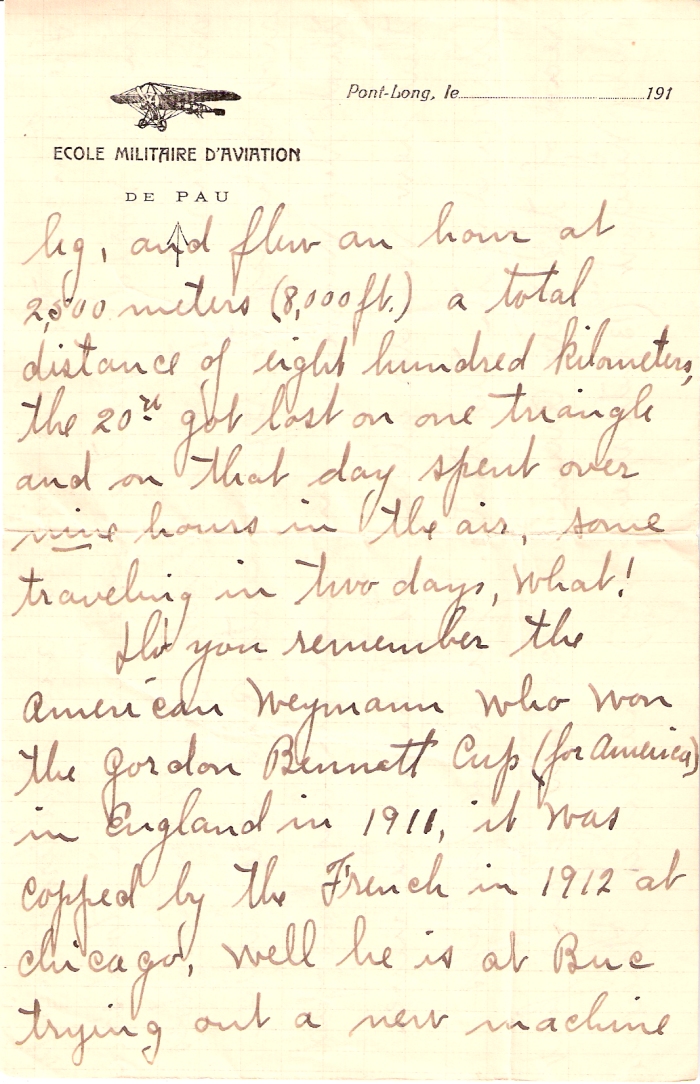 Pont-Long, le 191
ECOLE MILITAIRE D'AVIATION
DE PAU
leg, and flew an hour at
2,500 meters (8,000 ft.) a total
distance of eight hundred kilometers,
the 20th got lost on one triangle
and on that day spent over
nine hours in the air, some
traveling in two days, what!
Do you remember the
American Weymann who won
the Gordon Bennett Cup (for America)
in England in 1911, it was
copped by the French in 1912 at
chicago, well he is at Buc
trying out a new machine